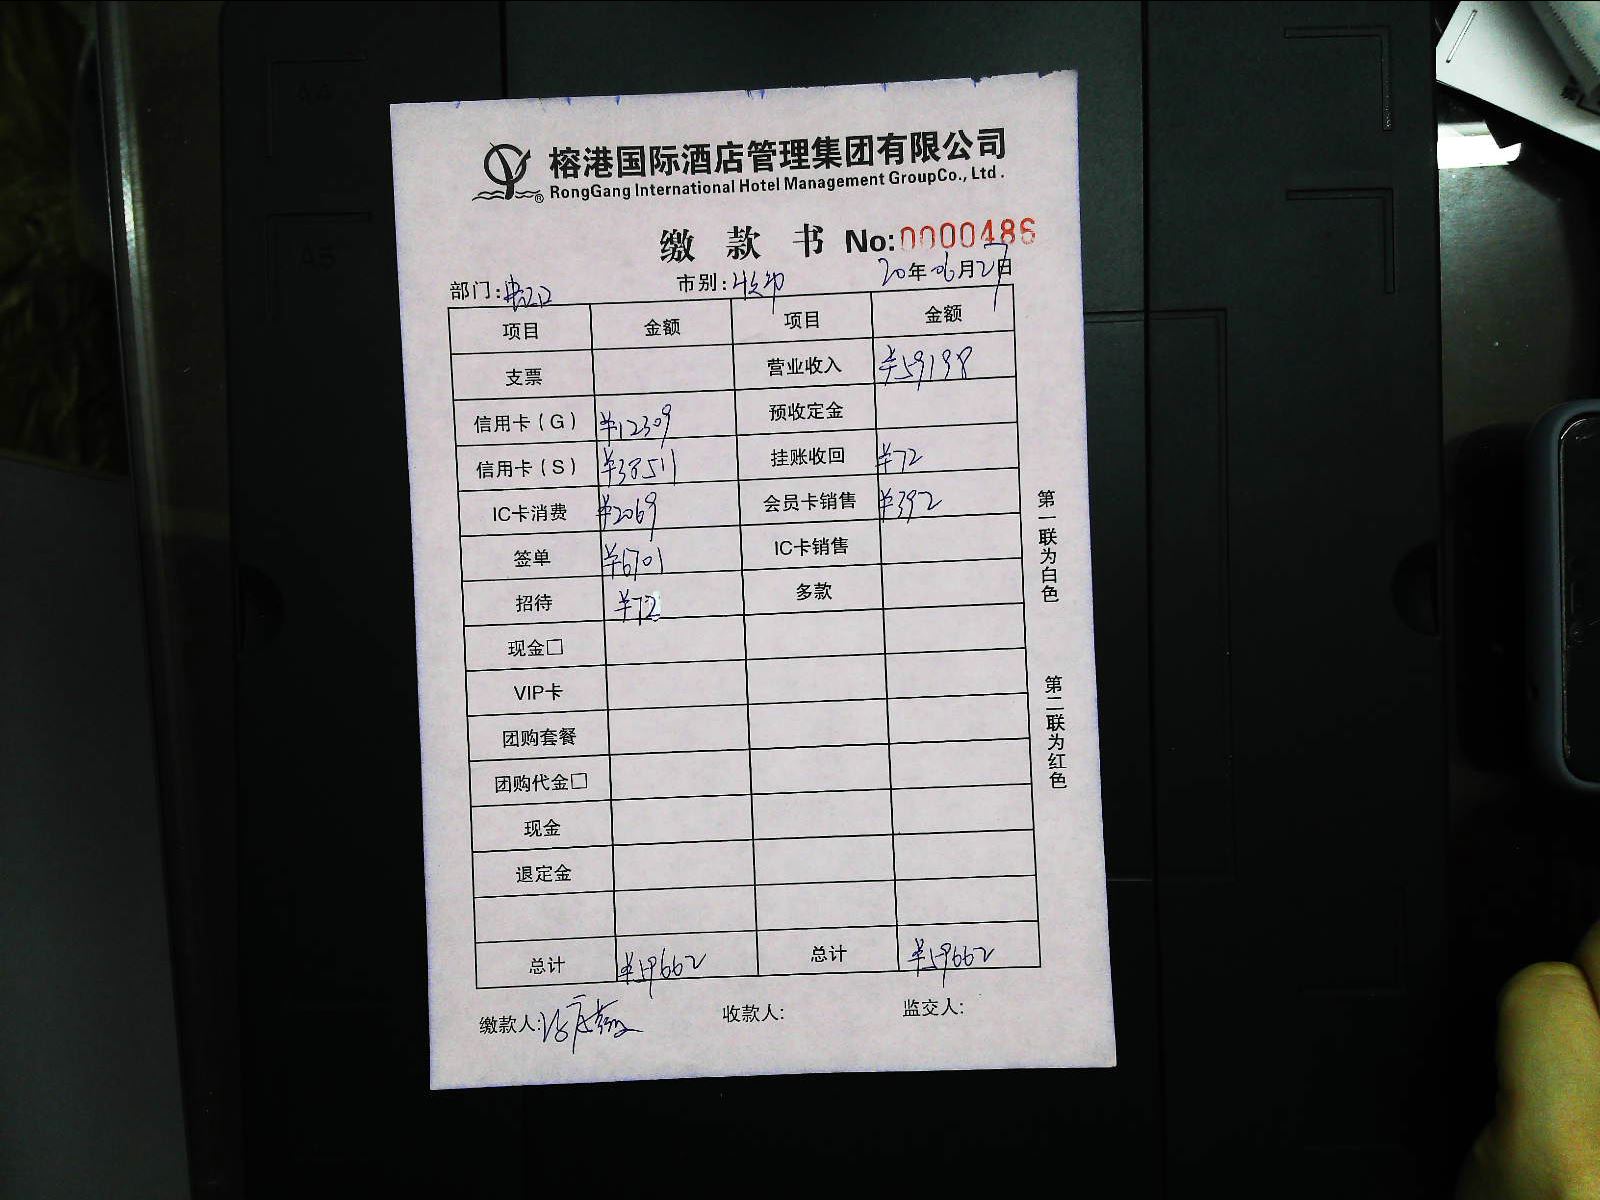 榕港国际酒店管理集团有限公司
RongGang International Hotel Management GroupCo., Ltd.
缴款书 No:0000486
部门: 市别: 20年06月27日
项目 金额 项目 金额
支票 营业收入 ¥59198
信用卡(G) ¥12309 预收定金
信用卡(S) ¥38511 挂账收回 ¥72
IC卡消费 ¥2069 会员卡销售 ¥392
签单 ¥6701 IC卡销售
招待 ¥72 多款
现金□
VIP卡
团购套餐
团购代金□
现金
退定金
总计 ¥59662 总计 ¥59662
缴款人: 收款人: 监交人:
第一联为白色
第二联为红色
A4
A5